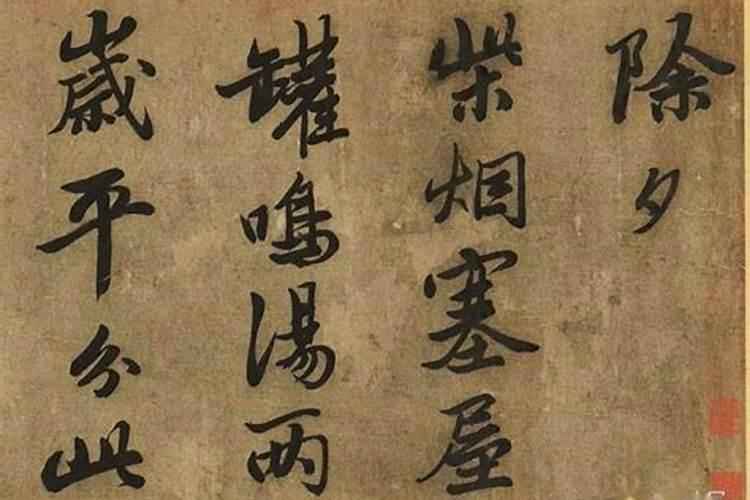 除夕
柴烟塞屋
罐鳴湯兩
歲平分此